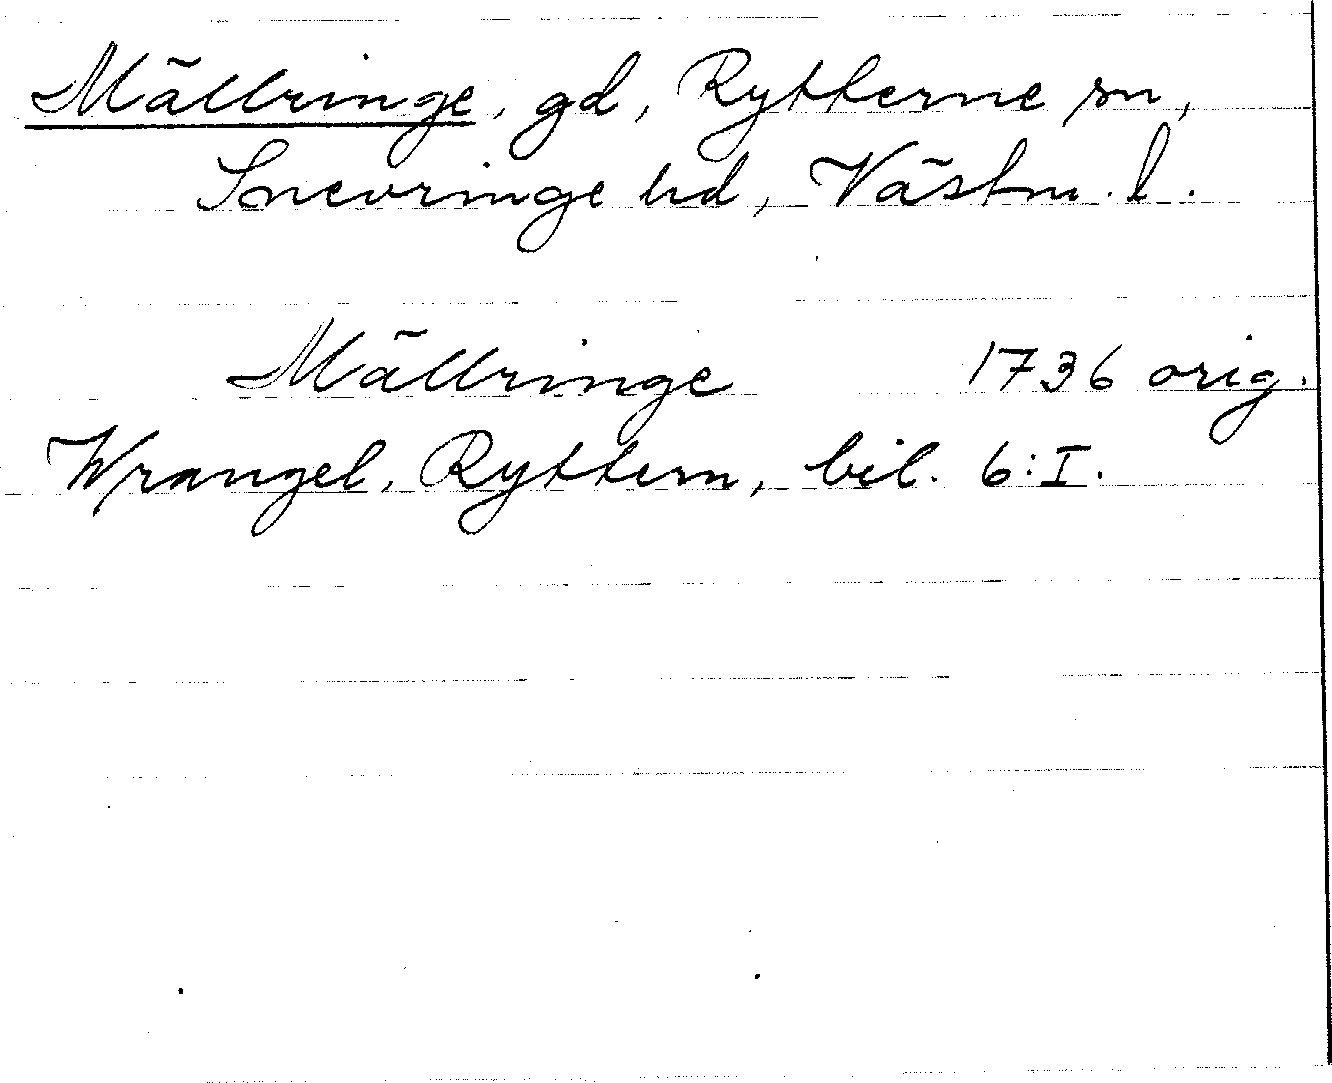 Mällringe, gd, Rytterne sn,
Snevringe hd, Västm. l.
Mällringe 1736 orig.
Wrangel, Ryttern, bil. 6:I.